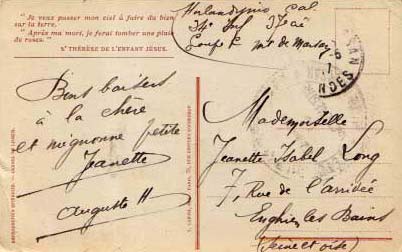 " Je veux passer mon ciel à faire du bien
sur la terre. "
" Après ma mort, je ferai tomber une pluie
de roses. "
Sᵗᵉ THÉRÈSE DE L'ENFANT JÉSUS.
Cal
Mt de Marsan
Bons baisers
à la chère
et mignonne petite
Jeanette
Auguste H
LANDES
Mademoiselle
Jeanette Isabel Long
7, Rue de l'arrivée
Enghien les Bains
(Seine et oise)